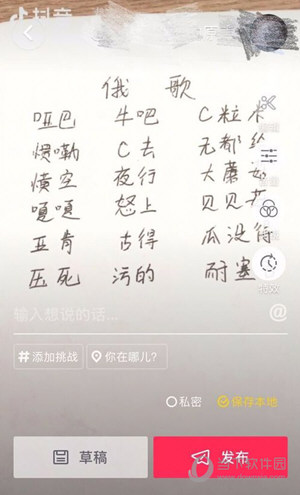 抖音
俄 歌
哑巴 牛吧 C粒
C去 无都
空 夜行 大蘑
嘎嘎 怒上 贝贝
亚肯 古得 瓜没得
压死 污的 耐塞
输入想说的话... @
#添加挑战 你在哪儿?
私密 保存本地
草稿 发布
当下软件园